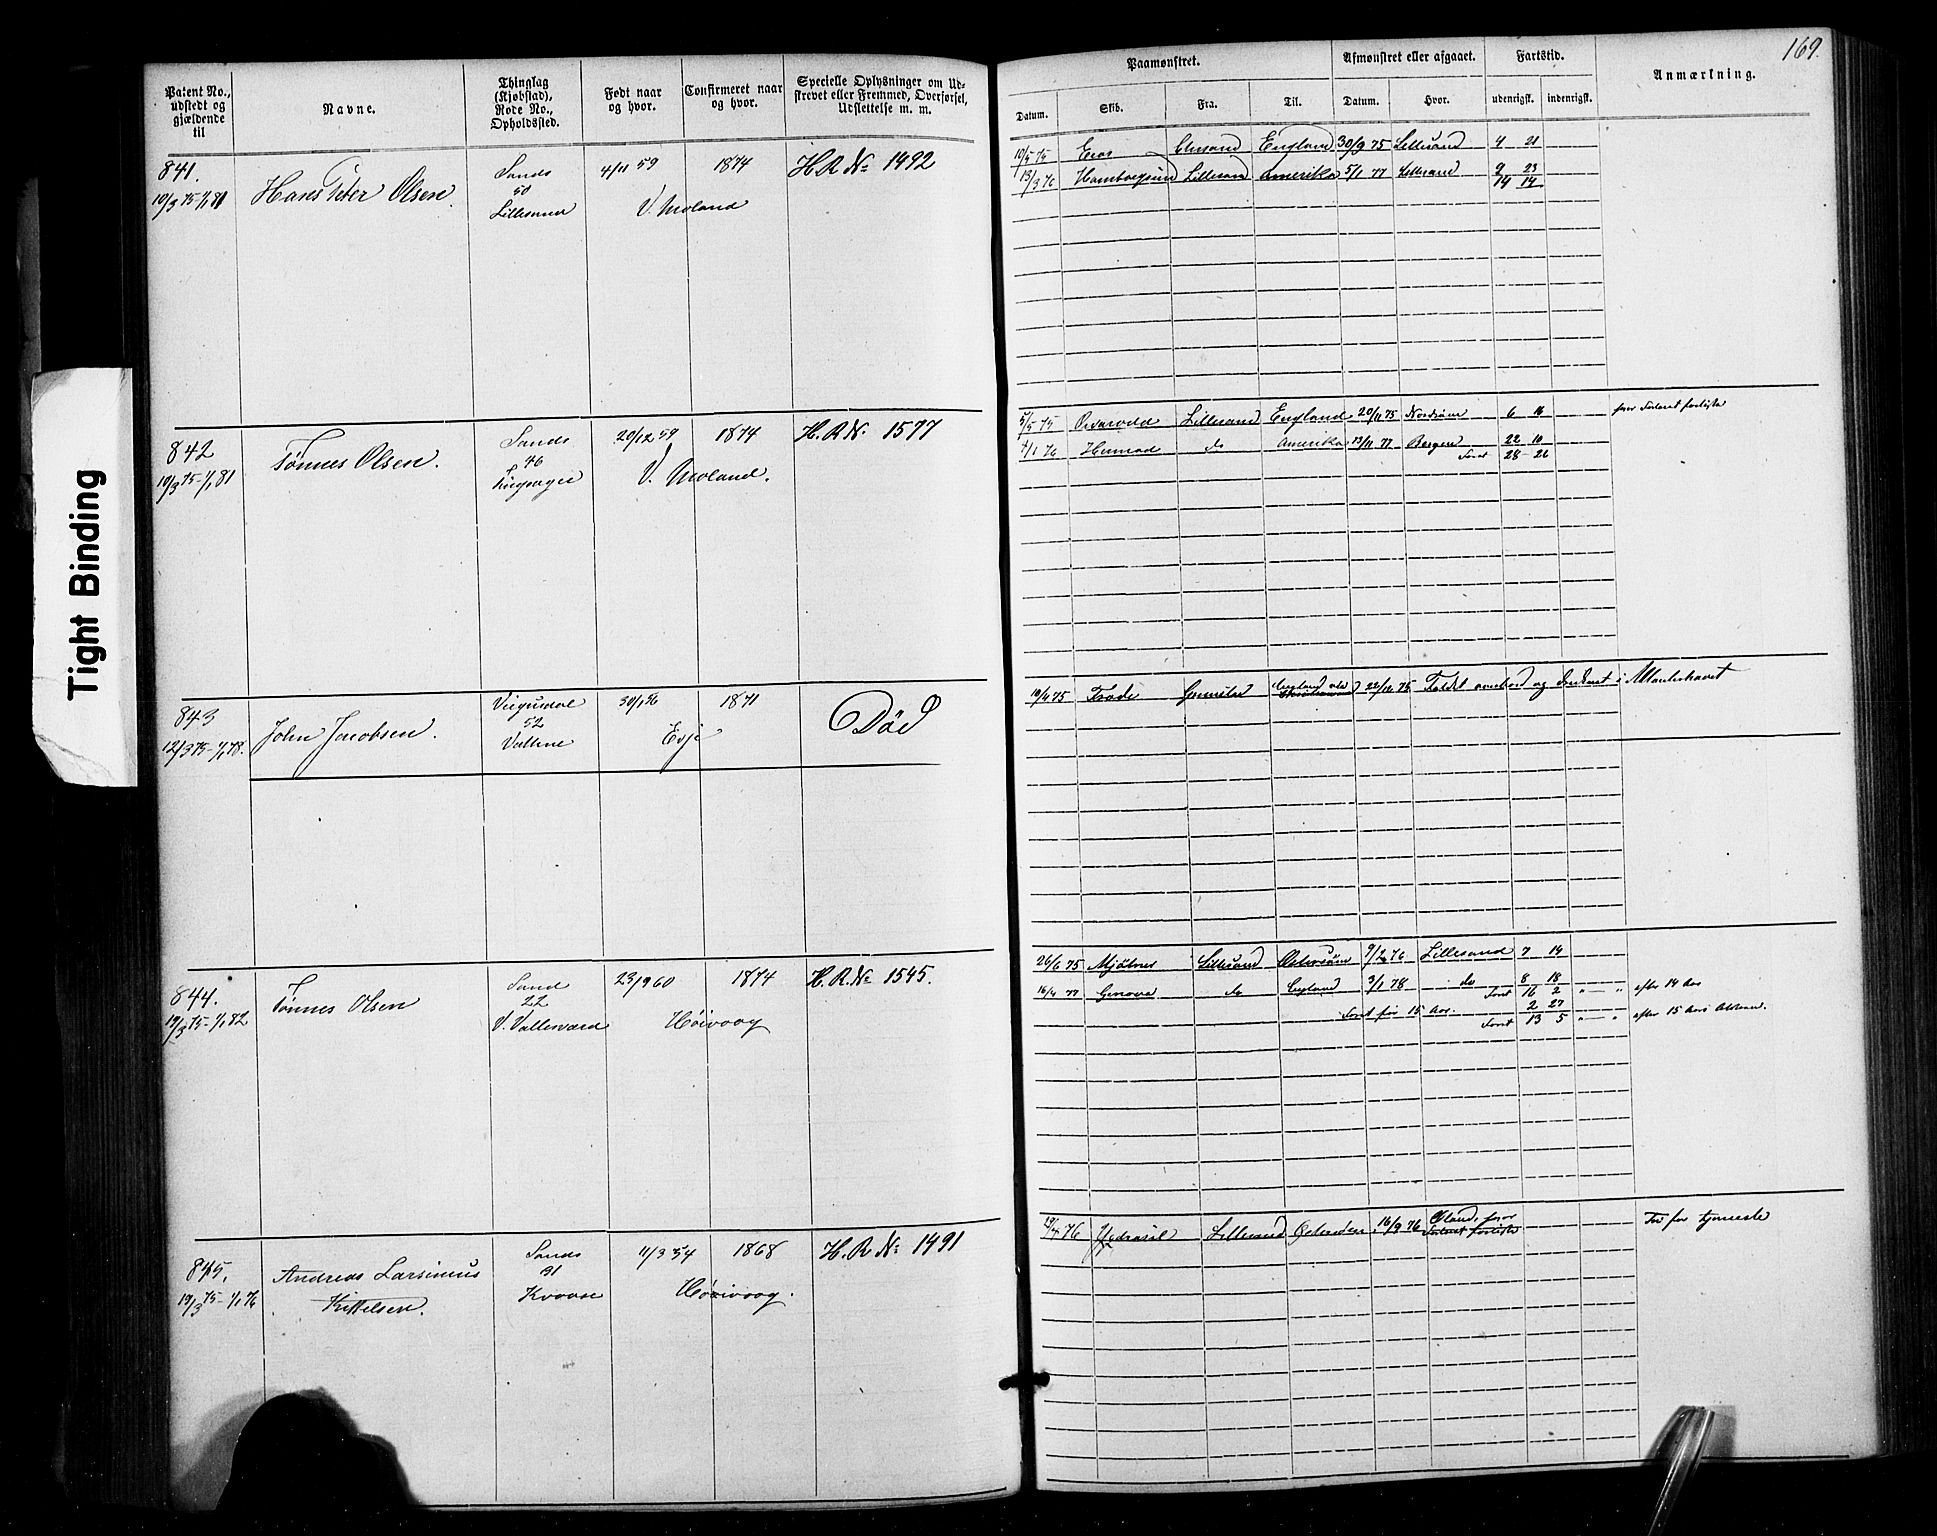 Tight Binding
Patent No., udstedt og gjældende til
Navne.
Thinglag (Kjøbstad), Rode No., Opholdssted.
Født naar og hvor.
Confirmeret naar og hvor.
Specielle Oplysninger om Udskrevet eller Fremmed, Overførsel, Udslettelse m. m.
841.
10/3 75-1/1 81
Hans Peter Olsen.
Sands
50
Lillesand
4/11 59
1874
V. Moland
H R No 1492
842
10/3 75-1/1 81
Tønnes Olsen.
Sands
46
20/12 59
1874
V. Moland.
H. R No. 1577
843
12/3 75-1/1 78.
John Jacobsen.
52
30/1 56
1871
Evje
Død
844.
19/3 75-1/1 82
Tønnes Olsen
Sand
22
V. Vallesværd
23/9 60
1874
Høivaag
H. R. No 1545.
845.
19/3 75-1/1 76
Andreas Larsinius
Kittelsen.
Sands
31
11/3 54
1868
Høivaag.
H. R No 1491
169.
Paamønstret.
Afmønstret eller afgaaet.
Fartstid.
Anmærkning.
Datum.
Skib.
Fra.
Til.
Datum.
Hvor.
udenrigsk.
indenrigsk.
10/4 75 England 30/9 75 Lillesand 4 21
13/3 76 Lillesand Amerika 5/1 77 Lillesand 9 23
14 14
5/5 75 Lillesand England 20/11 75 6 16
4/1 76 do Amerika 13/11 77 Bergen 22 10
28 26
10/4 75 Frode Grimstad 22/12 75 Faldet overbord og druknet i Atlanterhavet
26/6 75 Mjølner Lillesand 9/2 76 Lillesand 7 14
16/4 77 Genova do England 3/1 78 do 8 18
16 2 " — " efter 14 Aar
2 27
Fart før 15 Aar.
13 5 " — " efter 15 Aars Alderen.
19/4 76 Lillesand Østersøen 16/9 76 Øland, hvor
forladt forlist
Fri for tjeneste